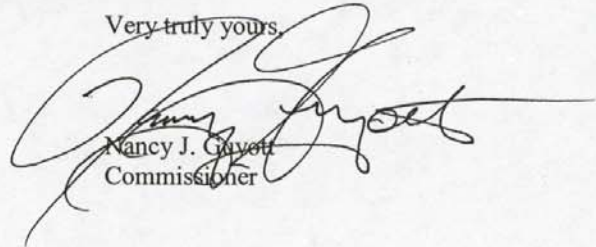 Very truly yours,
Nancy J. Guyott
Nancy J. Guyott
Commissioner